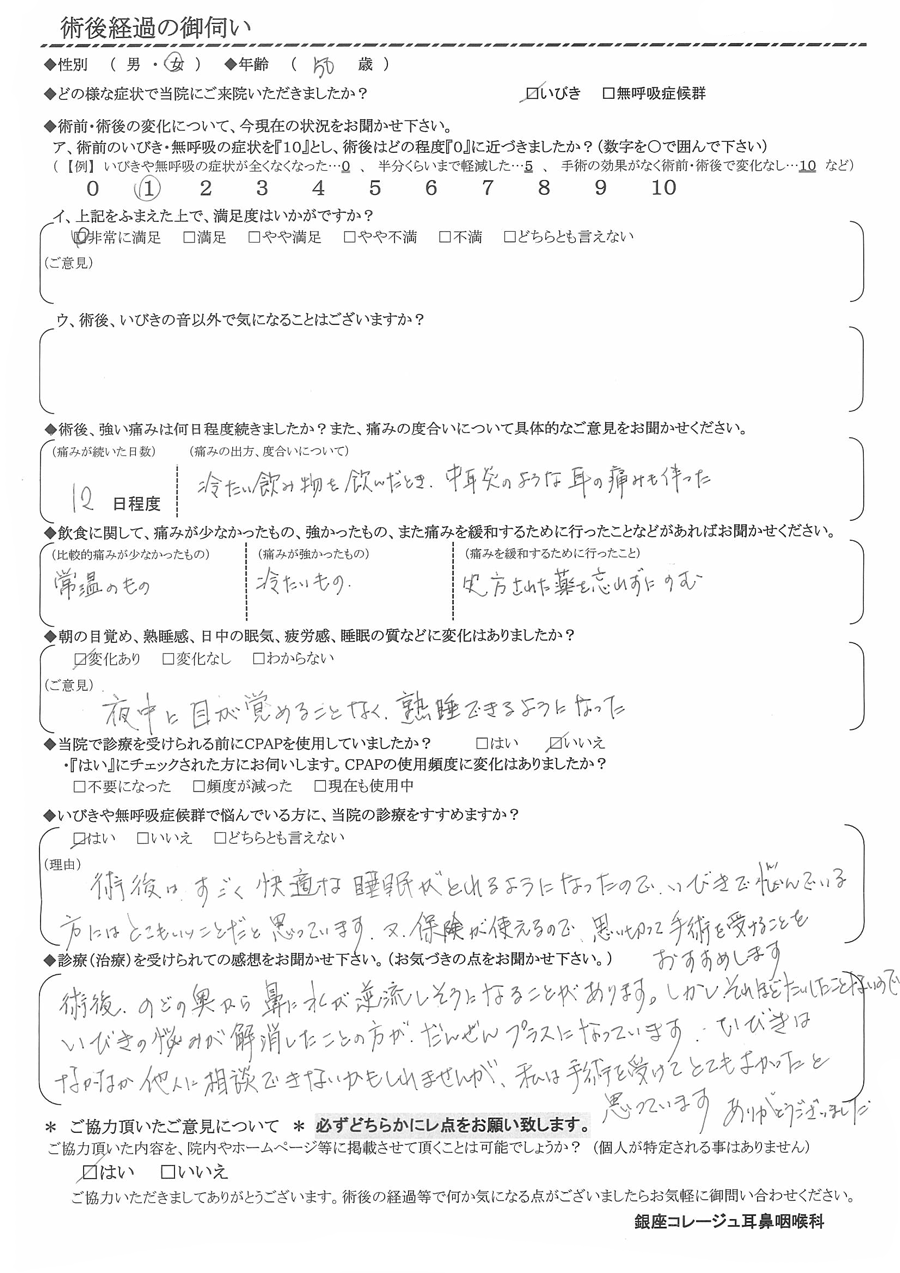 術後経過の御伺い
◆性別 ( 男 ・ 女 ) ◆年齢 ( 50 歳 )
◆どの様な症状で当院にご来院いただきましたか? ☑いびき □無呼吸症候群
◆術前・術後の変化について、今現在の状況をお聞かせ下さい。
ア、術前のいびき・無呼吸の症状を『10』とし、術後はどの程度『0』に近づきましたか?(数字を○で囲んで下さい)
(【例】いびきや無呼吸の症状が全くなくなった…0 、 半分くらいまで軽減した…5 、 手術の効果がなく術前・術後で変化なし…10 など)
0 ① 2 3 4 5 6 7 8 9 10
イ、上記をふまえた上で、満足度はいかがですか?
☑非常に満足 □満足 □やや満足 □やや不満 □不満 □どちらとも言えない
(ご意見)
ウ、術後、いびきの音以外で気になることはございますか?
◆術後、強い痛みは何日程度続きましたか?また、痛みの度合いについて具体的なご意見をお聞かせください。
(痛みが続いた日数) (痛みの出方、度合いについて)
12 日程度 冷たい飲み物を飲んだとき、中耳炎のような耳の痛みも伴った
◆飲食に関して、痛みが少なかったもの、強かったもの、また痛みを緩和するために行ったことなどがあればお聞かせください。
(比較的痛みが少なかったもの) (痛みが強かったもの) (痛みを緩和するために行ったこと)
常温のもの 冷たいもの. 処方された薬を忘れずにのむ
◆朝の目覚め、熟睡感、日中の眠気、疲労感、睡眠の質などに変化はありましたか?
☑変化あり □変化なし □わからない
(ご意見)
夜中に目が覚めることなく、熟睡できるようになった
◆当院で診療を受けられる前にCPAPを使用していましたか? □はい ☑いいえ
・『はい』にチェックされた方にお伺いします。CPAPの使用頻度に変化はありましたか?
□不要になった □頻度が減った □現在も使用中
◆いびきや無呼吸症候群で悩んでいる方に、当院の診療をすすめますか?
☑はい □いいえ □どちらとも言えない
(理由)
術後は、すごく快適な睡眠がとれるようになったので、いびきで悩んでいる
方にはとてもいいことだと思っています。又、保険が使えるので、思い切って手術を受けることを
おすすめします
◆診療(治療)を受けられての感想をお聞かせ下さい。(お気づきの点をお聞かせ下さい。)
術後、のどの奥から鼻に水が逆流しそうになることがあります。しかしそれほどたいしたことないので
いびきの悩みが解消したことの方が、だんぜんプラスになっています。いびきは
なかなか他人に相談できないかもしれませんが、私は手術を受けてとてもよかったと
思っています ありがとうございました
＊ ご協力頂いたご意見について ＊ 必ずどちらかにレ点をお願い致します。
ご協力頂いた内容を、院内やホームページ等に掲載させて頂くことは可能でしょうか? (個人が特定される事はありません)
☑はい □いいえ
ご協力いただきましてありがとうございます。術後の経過等で何か気になる点がございましたらお気軽に御問い合わせください。
銀座コレージュ耳鼻咽喉科